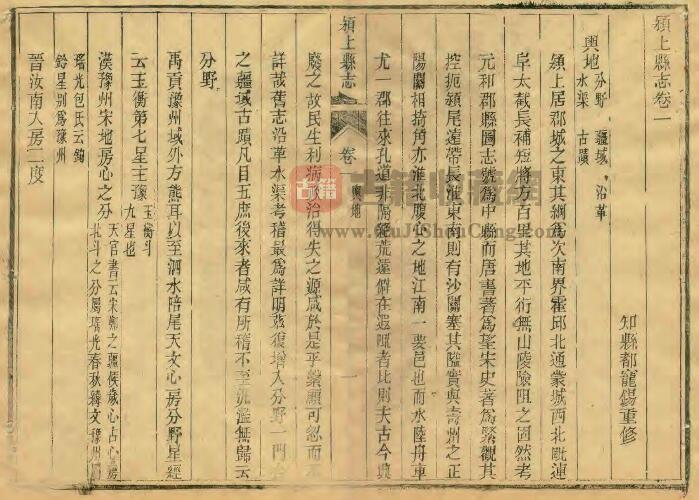 潁上縣志卷一
知縣都寵錫重修
輿地 分野 疆域 沿革
水渠 古蹟
潁上居郡城之東其綱為次南界霍邱北通蒙城西北旣連
阜太截長補短將方百里其地平衍無山陵險阻之固然考
元和郡縣圖志號為中縣而唐書著為望宋史著為緊觀其
控扼潁尾遠帶長淮東南則有沙關塞其隘實與壽州之正
陽關相掎角亦淮北腹心之地江南一要邑也而水陸舟車
尤一郡往來孔道非隔絕荒遠僻在遐陬者比則夫古今興
潁上縣志 卷一 輿地
廢之故民生利病政治得失之源咸於是乎繫顧可忽而不
詳哉舊志沿革水渠考稽最為詳明茲復增入分野一門合
之疆域古蹟凡目五庶後來者咸有所稽不至汎濫無歸云
分野
禹貢豫州域外方熊耳以至泗水陪尾天文心房分野星經
云玉衡第七星主豫 玉衡斗九星也
漢豫州宋地房心之分 天官書云宋鄭之疆候歲心占心房
北斗之分屬瑤光春秋緯文豫州屬
瑤光包氏云鉤
鈐星別為豫州
晉汝南入房二度
古籍
書籍收藏網
www.GuJiShouCang.Com